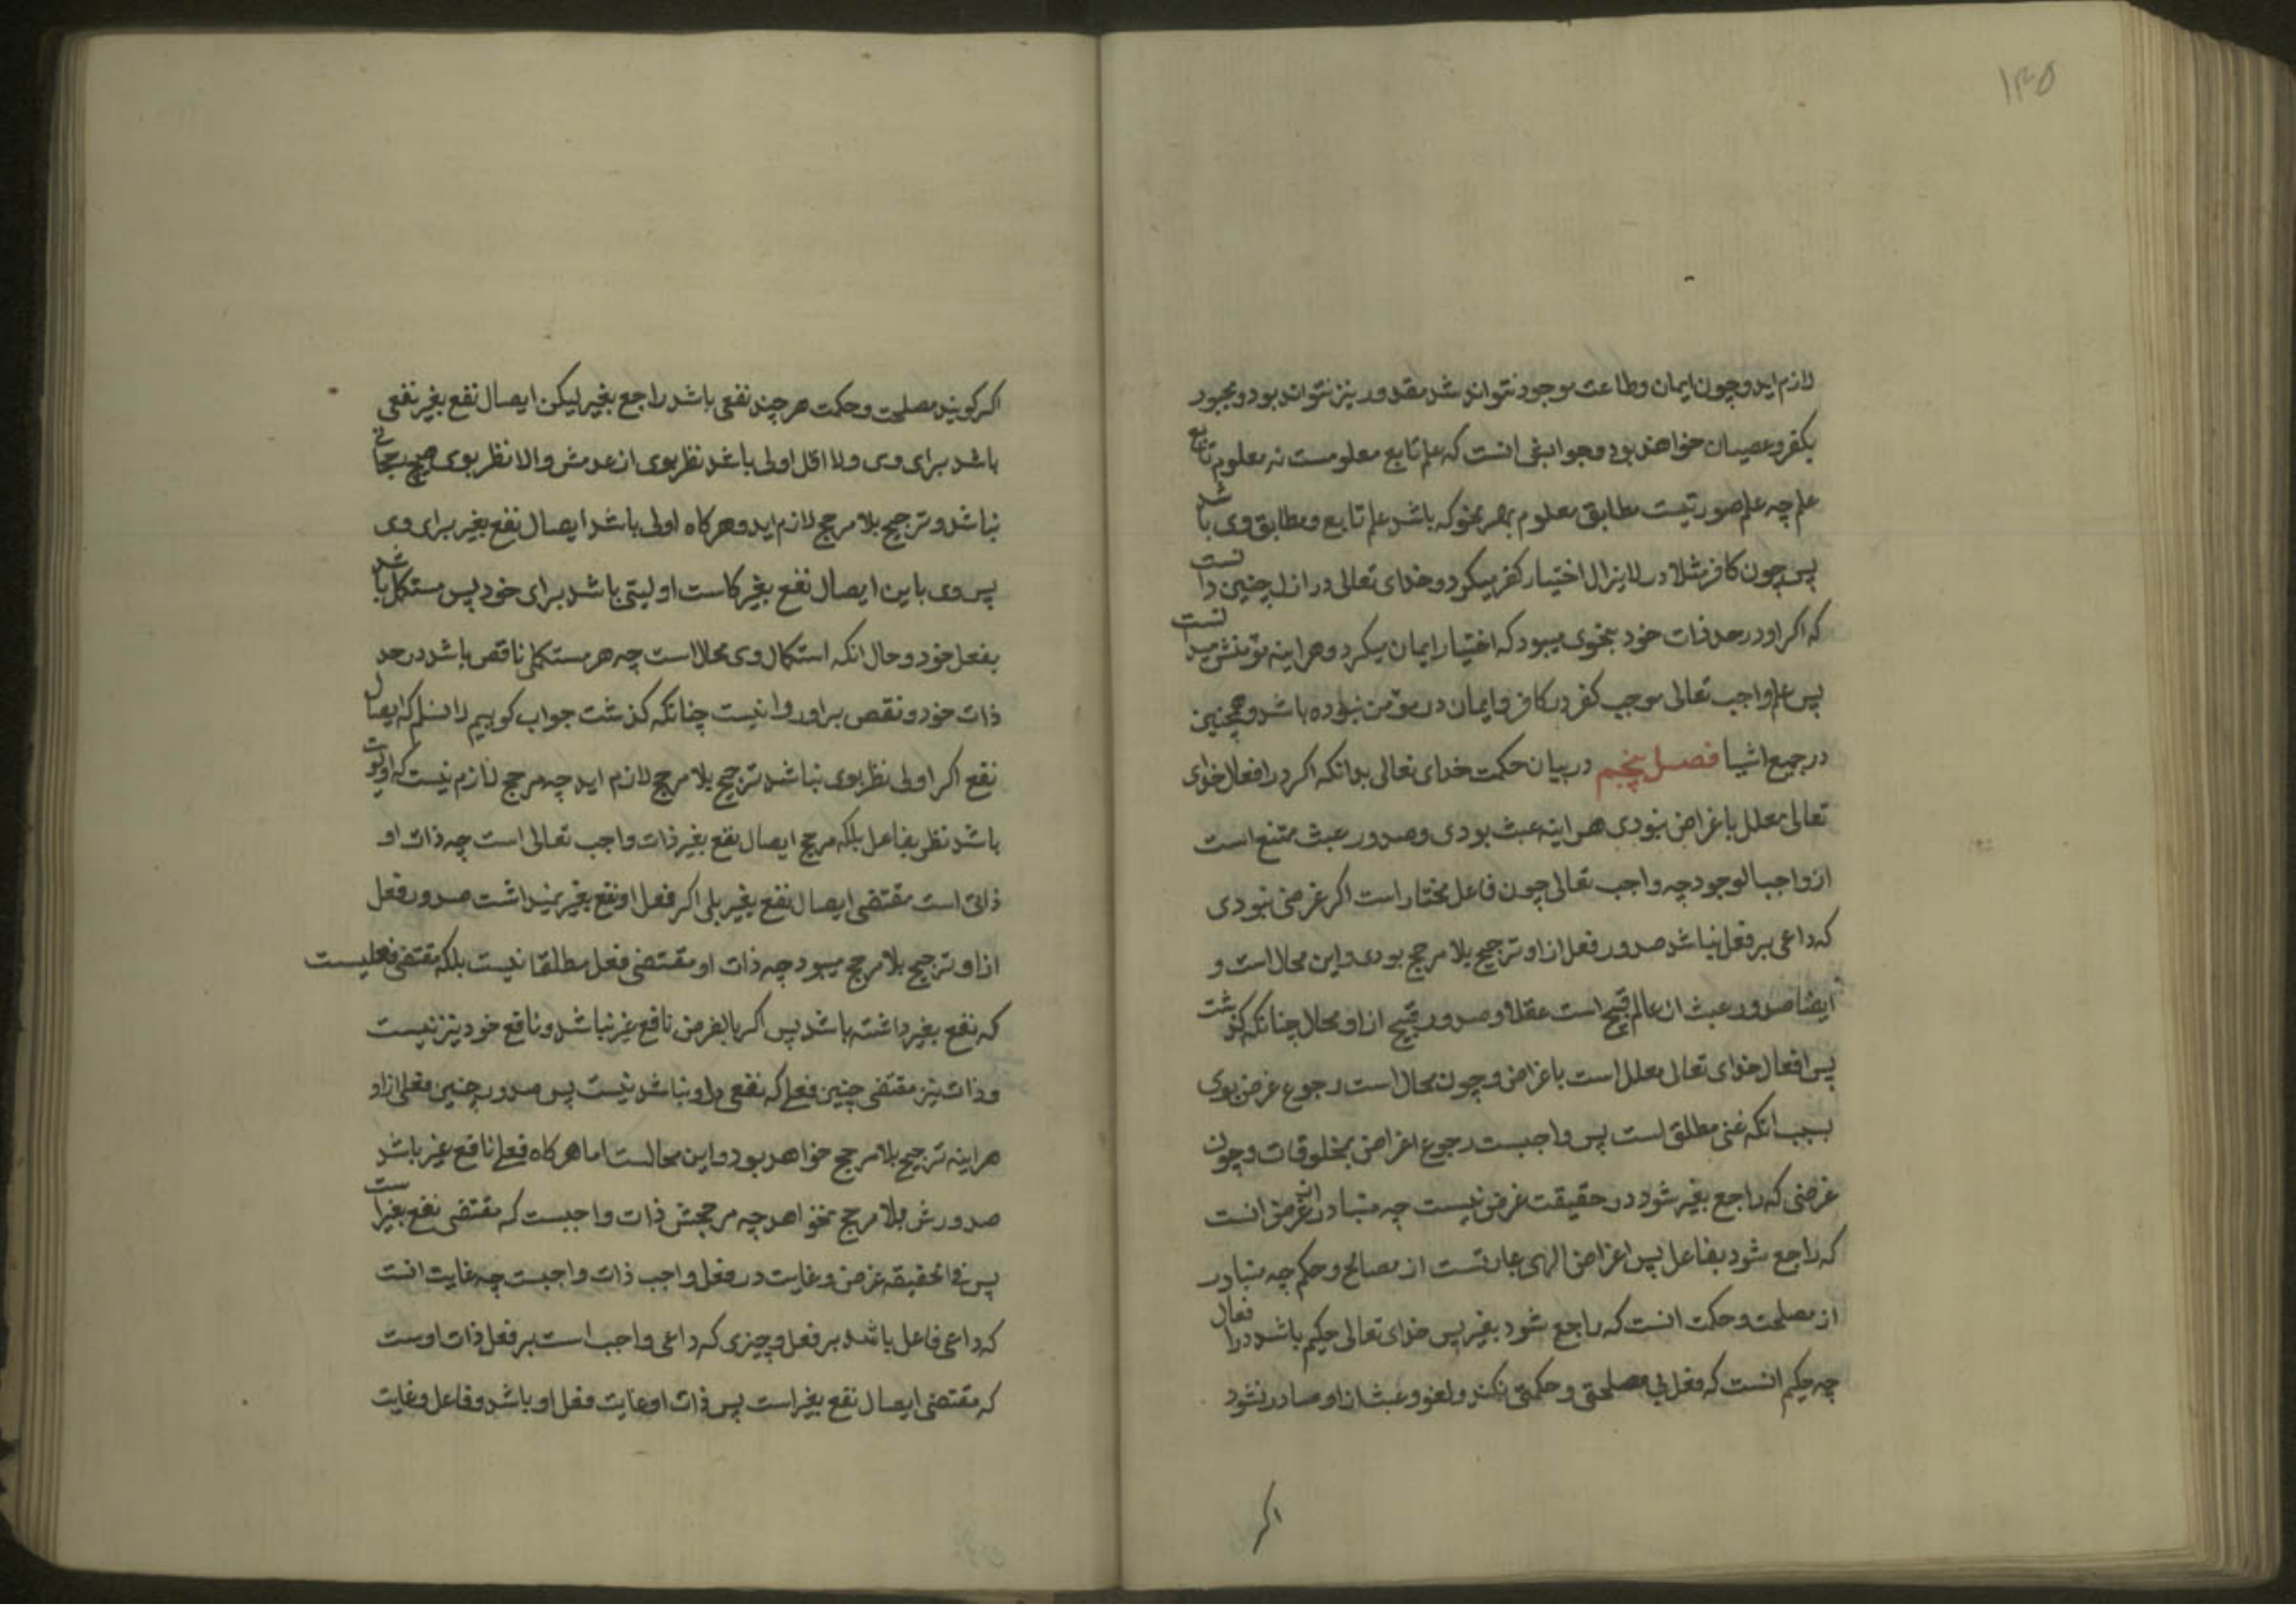 ۱۳۵
لازم اید و چون ایمان و طاعت موجود نتواند شد مقدور نیز نتواند بود و مجبور
بکفر و عصیان خواهند بود و جوابش انست که علم تابع معلومست نه معلوم تابع
علم چه علم صورتیست مطابق معلوم بهر نحو که باشد علم تابع و مطابق وی باشد
پس چون کافر مثلا در لایزال اختیار کفر میکرد و خدای تعالی در ازل چنین دانست
که اکر او در حد ذات خود بنحوی میبود که اختیار ایمان میکرد و هراینه مؤمنش میدانست
پس علم واجب تعالی موجب کفر در کافر و ایمان در مؤمن نبوده باشد و همچنین
در جمیع اشیا فصل پنجم در بیان حکمت خدای تعالی بدانکه اکر در افعال خدای
تعالی معلل باغراض نبودی هراینه عبث بودی و صدور عبث ممتنع است
از واجب الوجود چه واجب تعالی چون فاعل مختار است اکر غرضی نبودی
که داعی بر فعل نباشد صدور فعل از او ترجیح بلا مرجح بودی و این محال است و
ایضا صدور عبث از عالم قبیح است عقلا و صدور قبیح از او محال چنانکه کذشت
پس افعال خدای تعالی معلل است باغراض و چون محال است رجوع غرض بوی
بسبب انکه غنی مطلق است پس واجبست رجوع اغراض بمخلوقات و چون
غرضی که راجع بغیر شود در حقیقت غرض نیست چه متبادر از غرض انست
که راجع شود بفاعل پس اغراض الهی عبارتست از مصالح و حکم چه متبادر
از مصلحت و حکمت انست که راجع شود بغیر پس خدای تعالی حکیم باشد در افعال
چه حکیم انست که فعل بی مصلحتی و حکمتی نکند و لغو و عبث از او صادر نشود
اکر
اکر کویند مصلحت و حکمت هر چند نفعی باشد راجع بغیر لیکن ایصال نفع بغیر نفعی
باشد برای وی و لا اقل اولی باشد نظر بوی از عدمش و الا نظر بوی هیچ رجحانی
نباشد و ترجیح بلا مرجح لازم اید و هرکاه اولی باشد ایصال نفع بغیر برای وی
پس وی باین ایصال نفع بغیر کاست اولیتی باشد برای خود پس مستکمل باشد
بفعل خود و حال انکه استکمال وی محال است چه هر مستکملی ناقص باشد در حد
ذات خود و نقص بر او روا نیست چنانکه کذشت جواب کوییم لا نسلم که ایصال
نفع اکر اولی نظر بوی نباشد ترجیح بلا مرجح لازم اید چه مرجح لازم نیست که اولویت
باشد نظر بفاعل بلکه مرجح ایصال نفع بغیر ذات واجب تعالی است چه ذات او
ذاتی است مقتضی ایصال نفع بغیر بلی اکر فعل او نفع بغیر نمیداشت صدور فعل
از او ترجیح بلا مرجح میبود چه ذات او مقتضی فعل مطلقا نیست بلکه مقتضی فعلیست
که نفع بغیر داشته باشد پس اکر بالفرض نافع غیر نباشد و نافع خود نیز نیست
و ذات نیز مقتضی چنین فعلی که نفعی در او نباشد نیست پس صدور چنین فعلی از او
هراینه ترجیح بلا مرجح خواهد بود و این محالست اما هرکاه فعلی نافع غیر باشد
صدورش بلا مرجح نخواهد چه مرجحش ذات واجبست که مقتضی نفع بغیر است
پس فی الحقیقه غرض و غایت در فعل واجب ذات واجبست چه غایت انست
که داعی فاعل باشد بر فعل و چیزی که داعی واجب است بر فعل ذات اوست
که مقتضی ایصال نفع بغیر است پس ذات او غایت فعل او باشد و فاعل و غایت